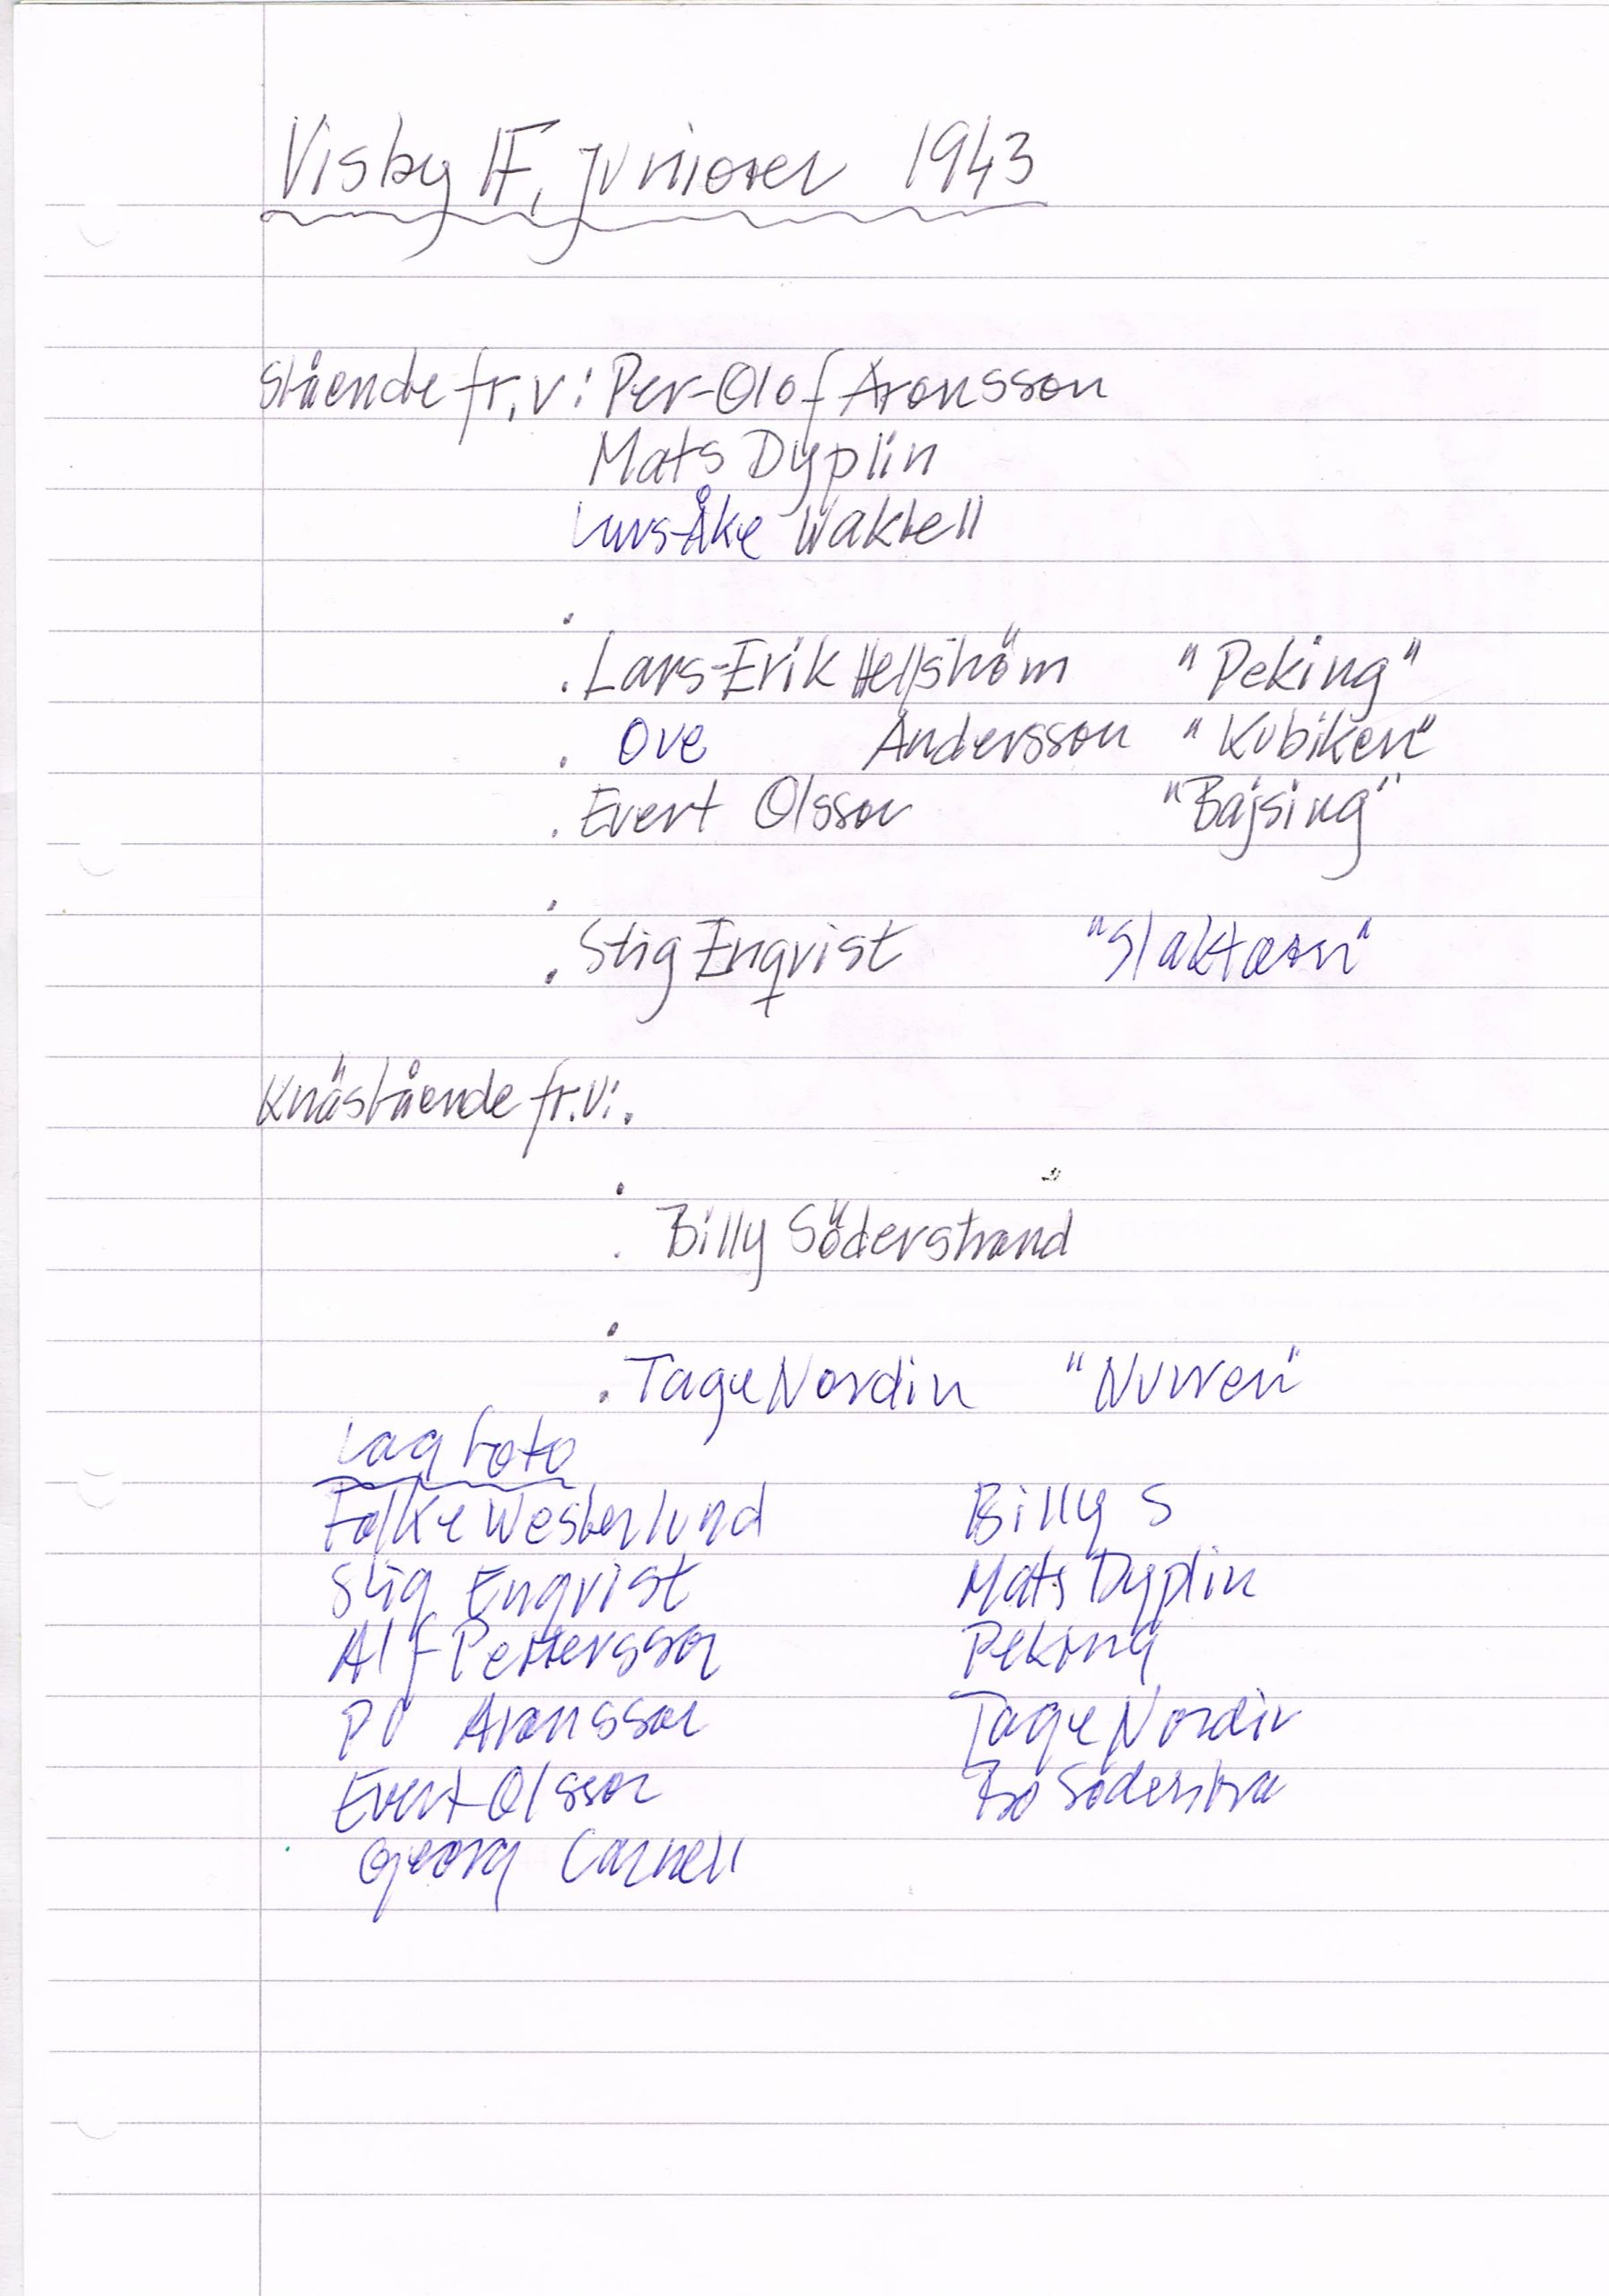 Visby IF, juniorer 1943
Stående fr.v: Per-Olof Aronsson
Mats Dyplin
Lars-Åke Waktell
.
. Lars-Erik Hellström "Peking"
. Ove Andersson "Kubiken"
. Evert Olsson "Bajsing"
.
. Stig Enqvist "Slaktarn"
Knästående fr.v:.
.
. Billy Söderstrand
.
. Tage Nordin "Nurren"
Lagfoto
Folke Westerlund Billy S
Stig Enqvist Mats Dyplin
Alf Pettersson Peking
PO Aronsson Tage Nordin
Evert Olsson Bo Söderstra
Georg Carnell